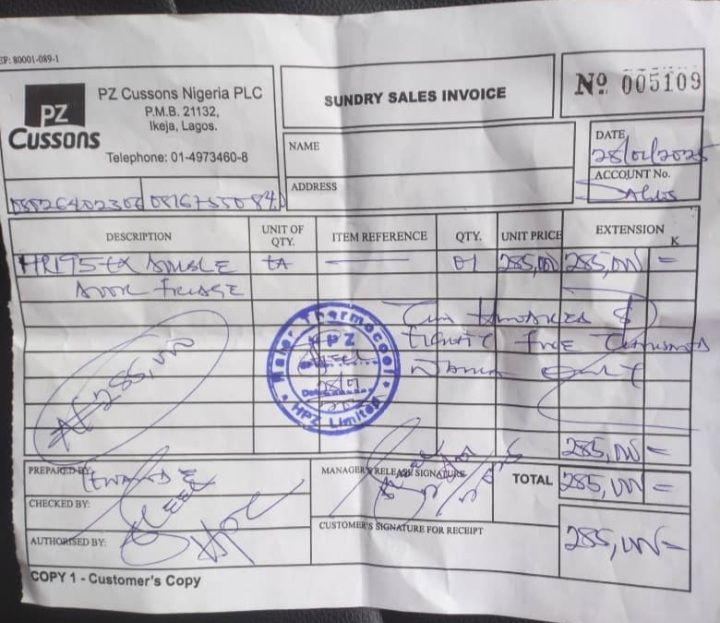 EP: 80001-089-1
PZ
Cussons
PZ Cussons Nigeria PLC
P.M.B. 21132,
Ikeja, Lagos.
Telephone: 01-4973460-8
SUNDRY SALES INVOICE
Nº 005109
NAME
ADDRESS
DATE
ACCOUNT No.
DESCRIPTION UNIT OF QTY. ITEM REFERENCE QTY. UNIT PRICE EXTENSION K
HR195 DOUBLE EA 01 285,000 285,000 =
DOOR FRIDGE
Two Hundred &
Eighty Five Thousand
Naira Only
285,000
Haier Thermocool
HPZ
HPZ Limited
285,000 =
PREPARED BY:
CHECKED BY:
AUTHORISED BY:
MANAGER'S RELEASE SIGNATURE
CUSTOMER'S SIGNATURE FOR RECEIPT
TOTAL 285,000 =
285,000 =
COPY 1 - Customer's Copy